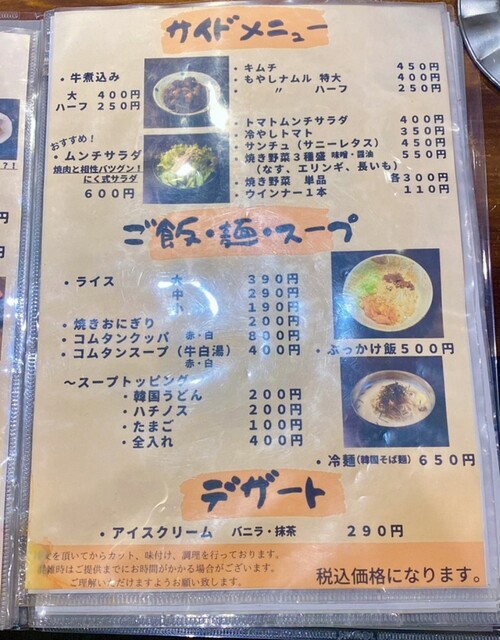 サイドメニュー
・牛煮込み
大 400円
ハーフ 250円
おすすめ!
・ムンチサラダ
焼肉と相性バツグン!
にく式サラダ
600円
・キムチ 450円
・もやしナムル 特大 400円
・ 〃 ハーフ 250円
・トマトムンチサラダ 400円
・冷やしトマト 350円
・サンチュ(サニーレタス) 450円
・焼き野菜3種盛 味噌・醤油 550円
(なす、エリンギ、長いも)
・焼き野菜 単品 各300円
・ウインナー1本 110円
ご飯・麺・スープ
・ライス 大 390円
中 290円
小 190円
・焼きおにぎり 200円
・コムタンクッパ 赤・白 800円
・コムタンスープ(牛白湯) 400円
赤・白
~スープトッピング
・韓国うどん 200円
・ハチノス 200円
・たまご 100円
・全入れ 400円
・ぶっかけ飯500円
・冷麺(韓国そば麺) 650円
デザート
・アイスクリーム バニラ・抹茶 290円
を頂いてからカット、味付け、調理を行っております。
雑時はご提供までにお時間がかかる場合がございます。
ご理解いただけますようお願い致します。
税込価格になります。